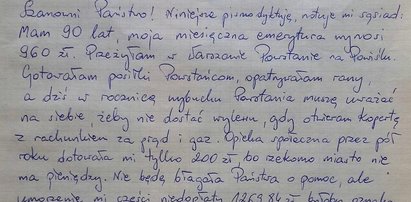 Szanowni Państwo! Niniejsze pismo dyktuję, notuje mi sąsiad:
Mam 90 lat, moja miesięczna emerytura wynosi
960 zł. Przeżyłam w Warszawie Powstanie na Powiślu.
Gotowałam posiłki Powstańcom, opatrywałam rany,
a dziś w rocznicę wybuchu Powstania muszę uważać
na siebie, żeby nie dostać wylewu, gdy otwieram kopertę
z rachunkiem za prąd i gaz. Opieka społeczna przez pół
roku dotowała mi tylko 200 zł, bo rzekomo miasto nie
ma pieniędzy. Nie będę błagała Państwa o pomoc, ale
umorzenie mi części niedopłaty 1269,84 zł byłoby